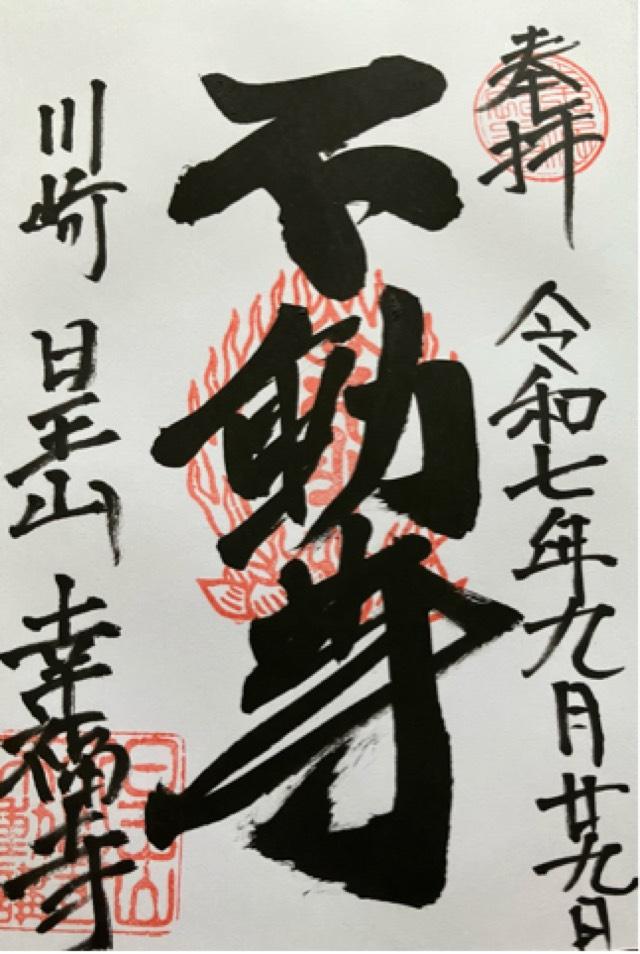 奉拝
令和七年九月廿九日
不動尊
川崎 日王山 幸福寺